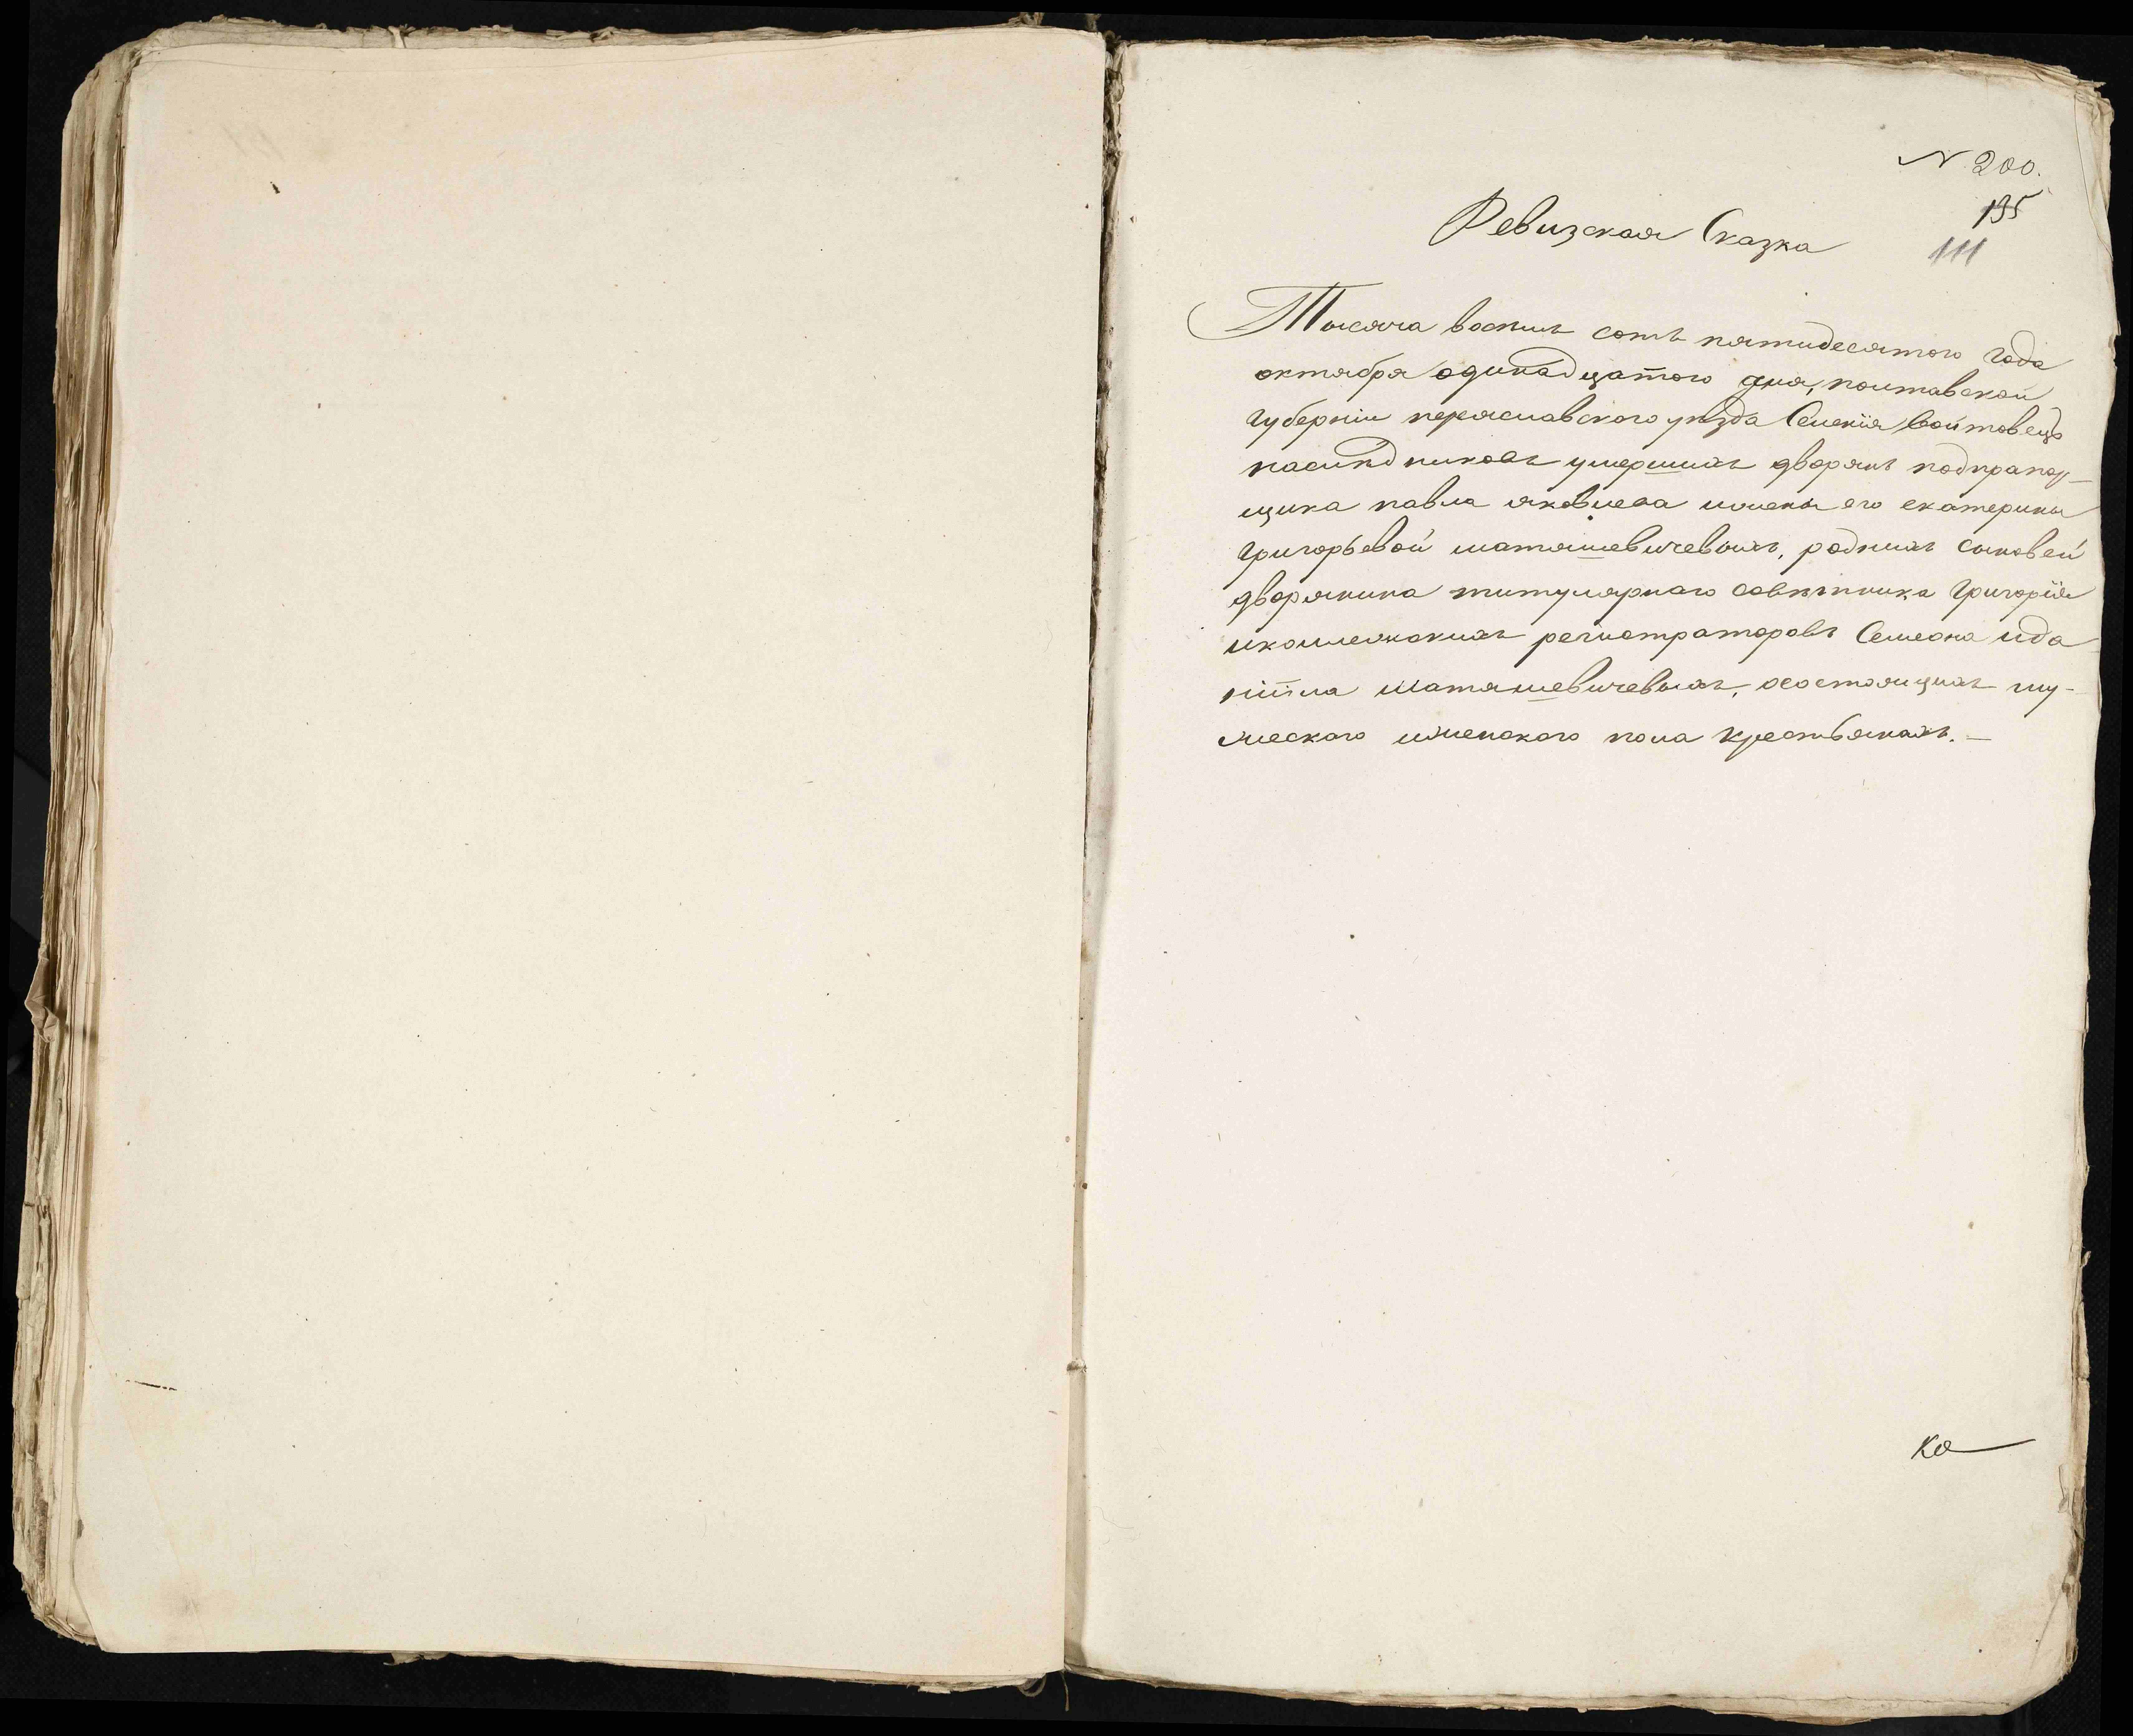 N 200.
195
111
Ревизская Сказка
Тысяча восемь сотъ пятидесятого года
октября одинадцатого дня, полтавской
Губерніи переяславского уѣзда Селенія Войтовецъ
наслѣдниковъ умершихъ дворянъ подпрапор-
щика павла яковлева ижены его екатерины
Григорьевой маташевичевыхъ, родныхъ сыновей
дворянина титулярнаго совѣтника Григорія
иколлежскихъ регистраторовъ Семеона ида
ніила Маташевичевыхъ, осостоящихъ му-
жеского иженского пола крестьянахъ. —
Ко